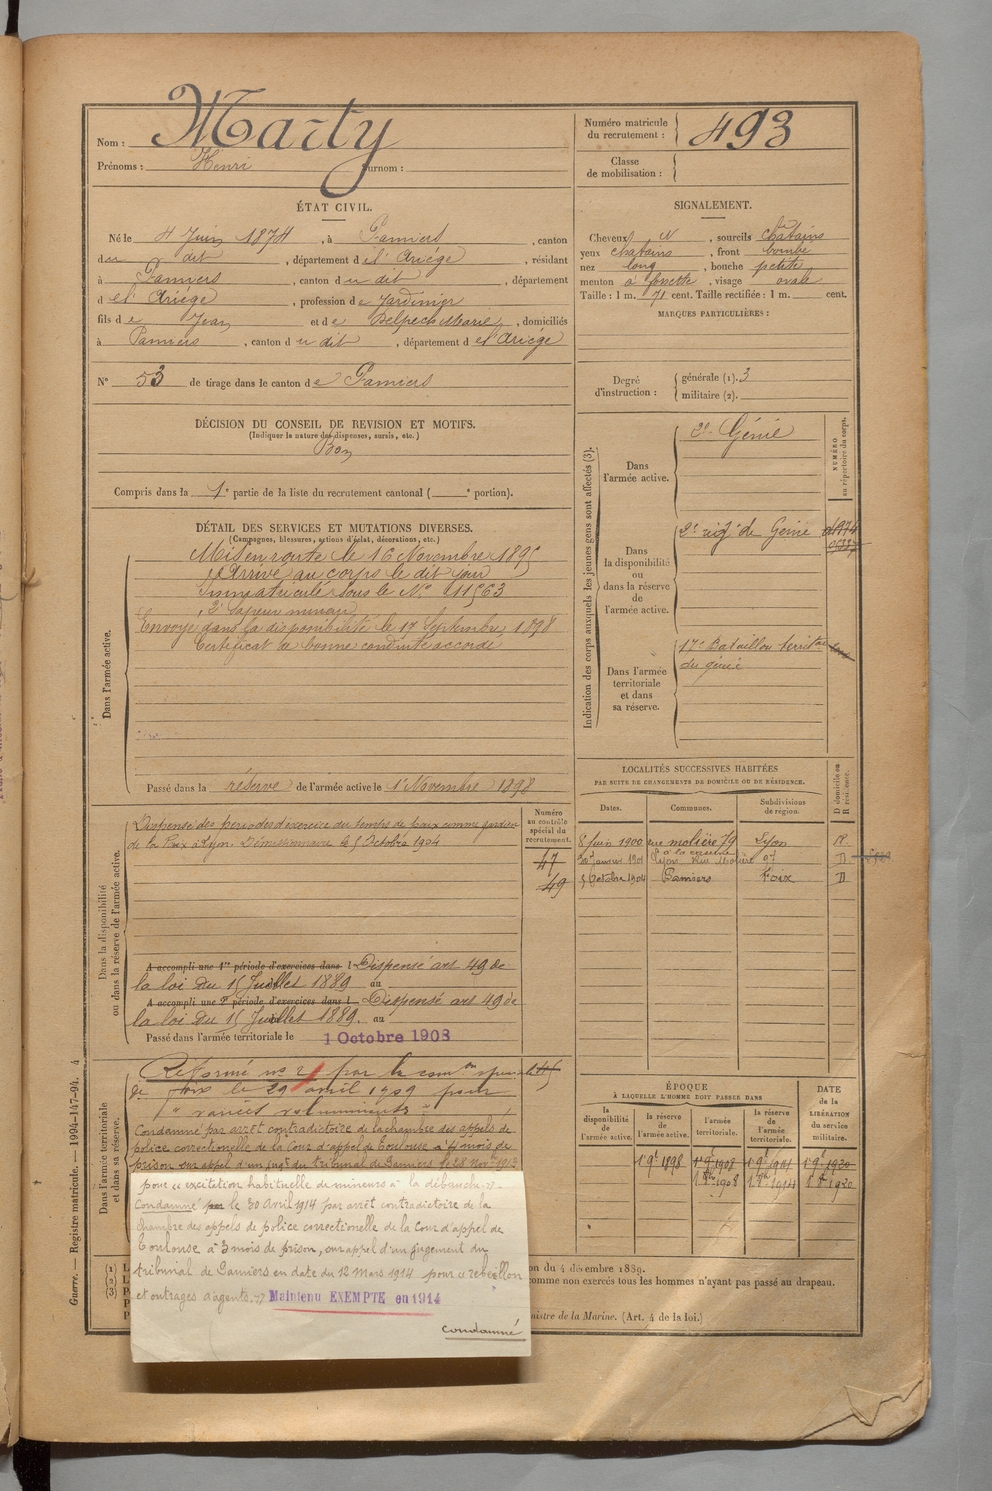 Nom : Marty
Prénoms : Henri surnom :
Numéro matricule du recrutement : 493
Classe de mobilisation :
ÉTAT CIVIL.
Né le 4 Juin 1874, à Pamiers, canton
du dit, département de l'Ariège, résidant
à Pamiers, canton du dit, département
de l'Ariège, profession de Jardinier
fils de Jean et de Delpech Marie, domiciliés
à Pamiers, canton du dit, département de l'Ariège
N° 53 de tirage dans le canton de Pamiers
SIGNALEMENT.
Cheveux N, sourcils chatains
yeux chatains, front bombé
nez long, bouche petite
menton à fossette, visage ovale
Taille : 1 m. 71 cent. Taille rectifiée : 1 m. cent.
MARQUES PARTICULIÈRES :
Degré d'instruction : générale (1). 3
militaire (2).
DÉCISION DU CONSEIL DE REVISION ET MOTIFS.
(Indiquer la nature des dispenses, sursis, etc.)
Bon
Compris dans la 1e partie de la liste du recrutement cantonal ( e portion).
DÉTAIL DES SERVICES ET MUTATIONS DIVERSES.
(Campagnes, blessures, actions d'éclat, décorations, etc.)
Dans l'armée active.
Mis en route le 16 Novembre 1895
Arrivé au corps le dit jour
Immatriculé sous le N° 11563
2e Sapeur mineur
Envoyé dans la disponibilité le 17 Septembre 1898
Certificat de bonne conduite accordé
Passé dans la réserve de l'armée active le 1 Novembre 1898
Indication des corps auxquels les jeunes gens sont affectés (3).
NUMÉRO au répertoire du corps.
Dans l'armée active.
2e Génie
Dans la disponibilité ou dans la réserve de l'armée active.
2e régt de Génie
Dans l'armée territoriale et dans sa réserve.
17e Bataillon territal
du génie
LOCALITÉS SUCCESSIVES HABITÉES
PAR SUITE DE CHANGEMENTS DE DOMICILE OU DE RÉSIDENCE.
D domicile ou R résidence.
Dates. Communes. Subdivisions de région.
8 Juin 1900 rue molière 79 Lyon R
Janvier 1901 Lyon Rue Molière 97 D
5 Octobre 1904 Pamiers Foix D
Dans la disponibilité ou dans la réserve de l'armée active.
Numéro au contrôle spécial du recrutement.
Dispensé des périodes d'exercice du temps de paix comme gardien
de la Paix à Lyon. Démissionnaire le 5 Octobre 1904
47
49
A accompli une 1re période d'exercices dans l Dispensé art 49 de
la loi du 15 Juillet 1889 au
A accompli une 2e période d'exercices dans l Dispensé art 49 de
la loi du 15 Juillet 1889. au
Passé dans l'armée territoriale le 1 Octobre 1908
Dans l'armée territoriale et dans sa réserve.
Réformé no 2 par la comon spéciale
de Foix le 29 avril 1909 pour
"varices volumineuses"
Condamné par arrêt contradictoire de la chambre des appels de
police correctionnelle de la Cour d'appel de Toulouse à 4 mois de
prison sur appel d'un jugt du tribunal de Pamiers le 28 Novr 1913
pour "excitation habituelle de mineurs à la débauche".
Condamné par le 30 Avril 1914 par arrêt contradictoire de la
chambre des appels de police correctionnelle de la Cour d'appel de
Toulouse à 3 mois de prison, sur appel d'un jugement du
tribunal de Pamiers en date du 12 Mars 1914 pour "rebellion
et outrages à agents."
Maintenu EXEMPTE en 1914
condamné
ÉPOQUE
À LAQUELLE L'HOMME DOIT PASSER DANS
la disponibilité de l'armée active. la réserve de l'armée active. l'armée territoriale. la réserve de l'armée territoriale.
DATE de la LIBÉRATION du service militaire.
(1) L
(2) L
(3)
on du 4 décembre 1889.
comme non exercés tous les hommes n'ayant pas passé au drapeau.
nistre de la Marine. (Art. 4 de la loi.)
Guerre. — Registre matricule. — 1994-147-94. 4